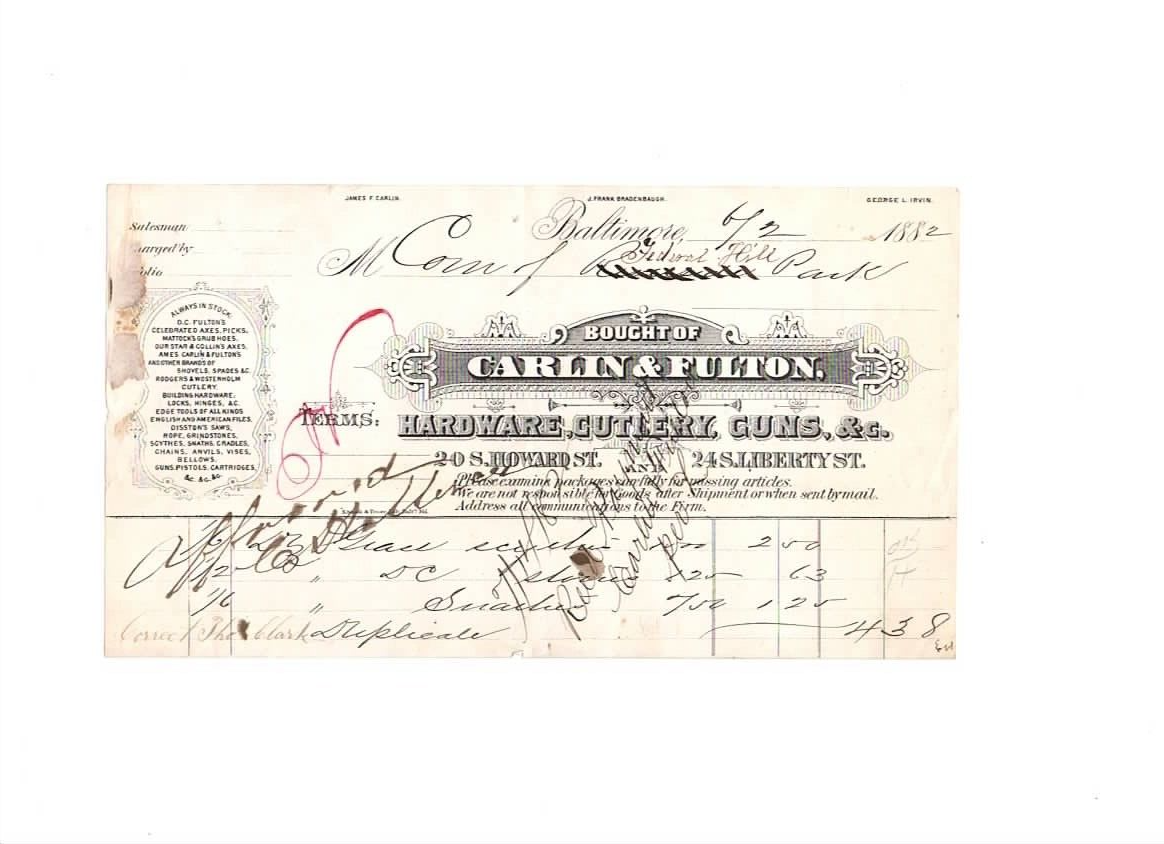 JAMES F. CARLIN. J. FRANK BRADENBAUGH. GEORGE L. IRVIN.
Salesman
Baltimore, 6/2 1882
Charged by
M Com of Federal Hill Park
Folio
ALWAYS IN STOCK,
D.C. FULTON'S
CELEBRATED AXES, PICKS,
MATTOCK'S GRUB HOES,
OUR STAR & COLLIN'S AXES,
AMES CARLIN & FULTON'S
AND OTHER BRANDS OF
SHOVELS, SPADES &C.
RODGERS & WOSTENHOLM
CUTLERY.
BUILDING HARDWARE;
LOCKS, HINGES, &C.
EDGE TOOLS OF ALL KINDS
ENGLISH AND AMERICAN FILES,
DISSTON'S SAWS,
ROPE, GRINDSTONES,
SCYTHES, SNATHS, CRADLES,
CHAINS, ANVILS, VISES,
BELLOWS,
GUNS, PISTOLS, CARTRIDGES,
&C. &C. &C.
BOUGHT OF
CARLIN & FULTON,
TERMS:
HARDWARE, CUTLERY, GUNS, &c.
20 S. HOWARD ST. AND 24 S. LIBERTY ST.
Please examine packages carefully for missing articles.
We are not responsible for Goods after Shipment or when sent by mail.
Address all communications to the Firm.
Grass 2 50
1/2 " DC stones 1 25 63
1/6 " Snathes 7 50 1 25
Correct Tho Clark Duplicate 4 38